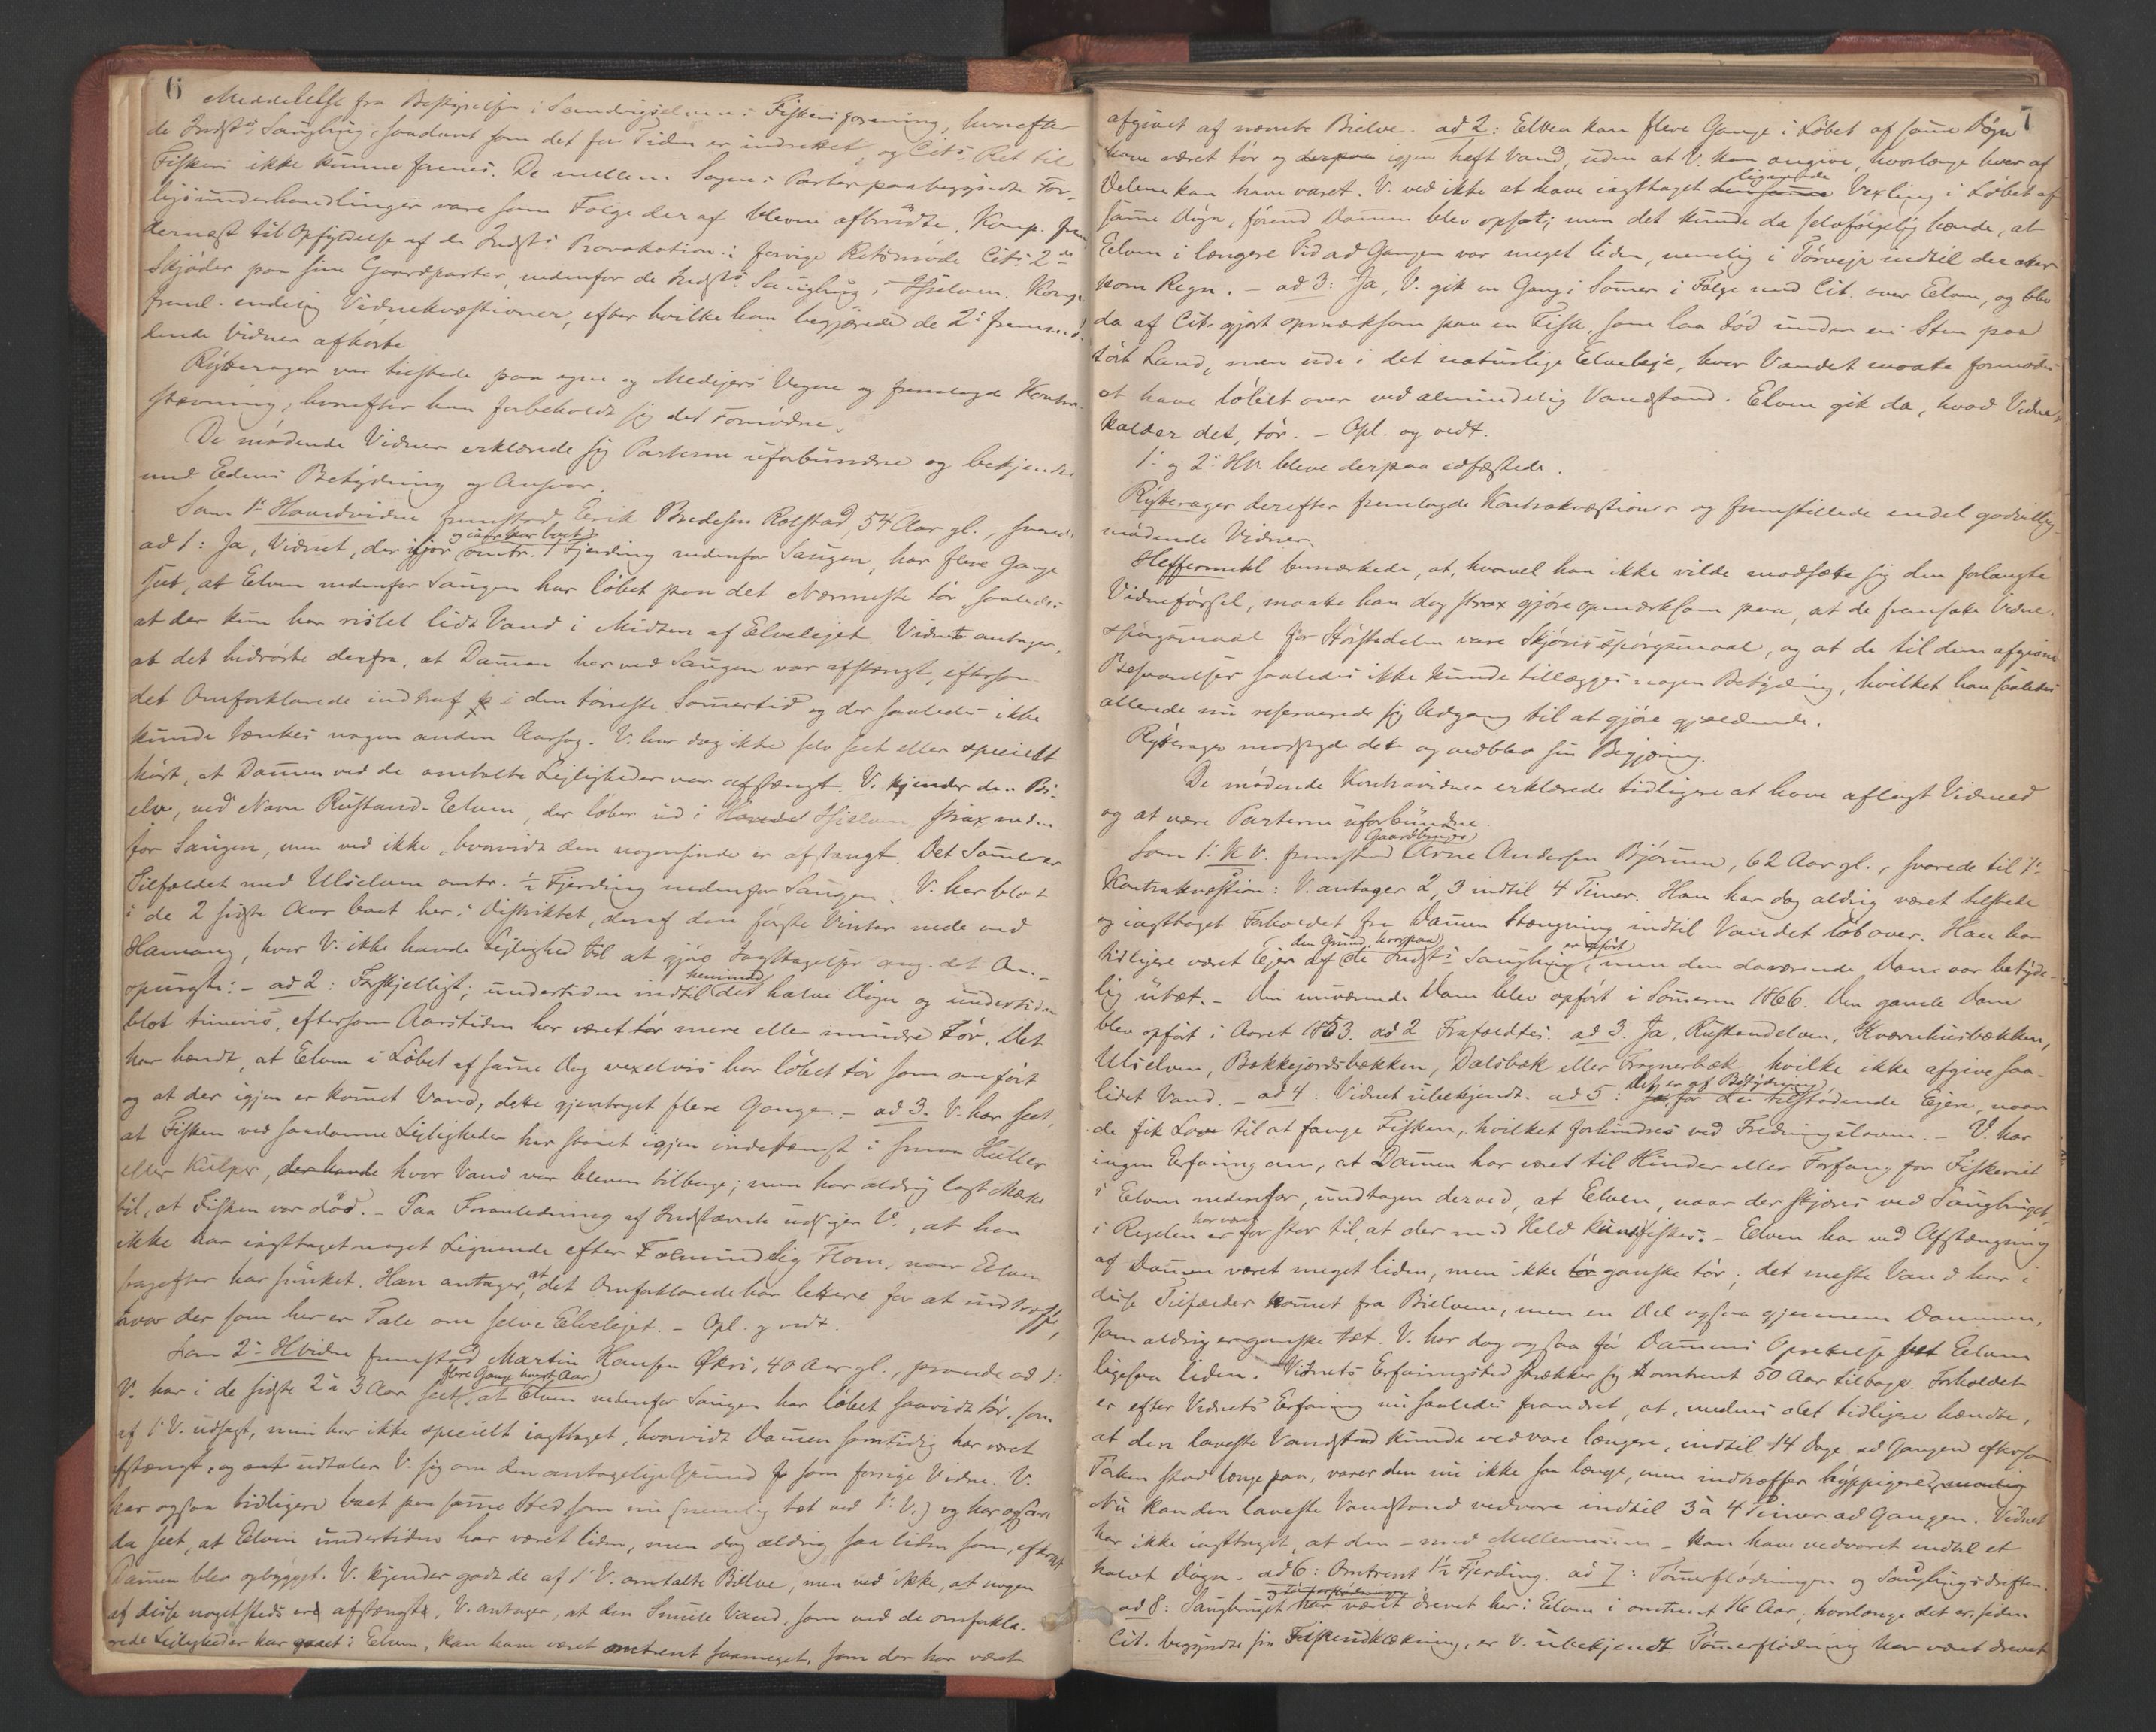 6
Meddelelse fra Bestyrelsen i Sandvigselvens Fiskeriforening, hvorefter
de Indst.s Saugbrug, saadant som det for Tiden er indrettet, og Cit.s Ret til
Fiskeri ikke kunne forenes. De mellem Sagens Parter paabegyndte For-
ligsunderhandlinger vare som Følge deraf blevne afbrudte. Komp. frem
dernæst til Opfyldelse af de Indst.s Provokation i forrige Retsmøde Cit.s 2de
Skjøder paa sine Gaardparter nedenfor de Indst.s Saugbrug i Elven. Komp.
freml. endelig Vidnekvæstioner, efter hvilke han begjærede de 2de fremmø-
dende Vidner afhørte
Rytterager var tilstede paa egne og Medejers Vegne og fremlagde Kontra-
stævning, hvorefter han forbeholdt sig det Fornødne.
De mødende Vidner erklærede sig Parterne uforbundne og bekjendte
med Edens Betydning og Ansvar.
Som 1ste Hovedvidne fremstod Eerik Bredesen Rolstad, 54 Aar gl., svarede
ad 1: Ja, Vidnet, der ifjor og iaar har boet omtr. 1 Fjerding nedenfor Saugen, har flere Gange
seet, at Elven nedenfor Saugen har løbet paa det Nærmeste tør, saaledes
at der kun har rislet lidt Vand i Midten af Elvelejet. Vidnet antager,
at det hidrørte derfra, at Dammen her ved Saugen var afstængt, eftersom
det Omforklarede indtraf i den tørreste Sommertid og der saaledes ikke
kunde tænkes nogen anden Aarsag. V. har dog ikke selv seet eller specielt
hørt, at Dammen ved de omtalte Lejligheder var afstængt. V. kjender den Bi-
elv, ved Navn Rustand-Elven, der løber ud i Hovedel Elven strax neden
for Saugen, men ved ikke, hvorvidt den nogensinde er afstængt. Det Samme er
Tilfældet med Ulselven omtr. ½ Fjerding nedenfor Saugen. V. har blot
i de 2 sidste Aar boet her i Distriktet, deraf den første Vinter nede ved
Hamang, hvor V. ikke havde Lejlighed til at gjøre Iagttagelser ang. det An-
spurgte. - ad 2: Forskjelligt; undertiden indtil henimod det halve Døgn og undertiden
blot timevis, eftersom Aarstiden har været tør mere eller mindre tør. Det
har hændt, at Elven i Løbet af samme Dag vexelvis har løbet tør som anført
og at der igjen er kommet Vand, dette gjentaget flere Gange. - ad 3. V. har seet,
at Fisken ved saadanne Lejligheder har staaet igjen indestængt i smaa Huller
eller Kulper, der havde hvor Vand var bleven tilbage; men har aldrig lagt Mærke
til, at Fisken var død. - Paa Foranledning af Indstævnte udsiger V., at han
ikke har iagttaget noget Lignende efter Flom, naar Elven
bagefter har sunket. Han antager, at det Omforklarede har lettere for at indtræffe,
hvor der som her er Tale om selve Elvelejet. - Opl. og vedt.
Som 2det Hvidne fremstod Martin Hansen Økri, 40 Aar gl., svarede ad 1:
V. har i de sidste 2 à 3 Aar seet flere Gange hvert Aar, at Elven nedenfor Saugen har løbet saavidt tør, som
af 1ste V. udsagt, men har ikke specielt iagttaget, hvorvidt Dammen samtidig har været
afstængt, og udtaler V. sig om den antagelige Grund som forrige Vidne. V.
har ogsaa tidligere boet paa samme Sted som nu (nemlig tæt ved 1ste V.) og har ogsaa
da seet, at Elven undertiden har været liden, men dog aldrig saa liden som, efterat
Dammen blev opbygget. V. kjender godt de af 1ste V. omtalte Bielve, men ved ikke, at nogen
af disse nogetsteds ere afstængte. V. antager, at den Smule Vand, som ved de omforkla-
rede Lejligheder har gaaet i Elven, kan have været omtrent saameget, som der har været
7
afgivet af nævnte Bielve. ad 2: Elven kan flere Gange i Løbet af samme Døgn
have været tør og derpaa igjen havt Vand, uden at V. kan angive, hvorlænge hver af
Delene kan have varet. V. ved ikke at have iagttaget den samme lignende Vexling i Løbet af
samme Døgn, førend Dammen blev opsat; men det kunde da selvfølgelig hænde, at
Elven i længere Tid ad Gangen var meget liden, nemlig i Tørvejr indtil der atter
kom Regn. - ad 3: Ja, V. gik en Gang i Sommer i Følge med Cit. over Elven, og blev
da af Cit. gjort opmærksom paa en Fisk, som laa død under en Sten paa
tørt Land, men ude i det naturlige Elveleje, hvor Vandet maatte formodes
at have løbet over ved almindelig Vandstand. Elven gik da, hvad Vidnet
kalder det, tør. - Opl. og vedt.
1ste og 2det Hv. bleve derpaa edfæstede.
Rytterager derefter fremlagde Kontrakvæstioner og fremstillede endel godvillig
mødende Vidner.
Heffermehl bemærkede, at, hvorvel han ikke vilde modsætte sig den forlangte
Vidneførsel, maatte han dog strax gjøre opmærksom paa, at de fremsatte Vidne-
spørgsmaal for Størstedelen vare Skjønsspørgsmaal, og at de til dem afgivne
Besvarelser saaledes ikke kunde tillægges nogen Betydning, hvilket han saaledes
allerede nu reserverede sig Adgang til at gjøre gjældende.
Rytterager modsagde dette og vedblev sin Begjæring.
De mødende Kontravidner erklærede tidligere at have aflagt Vidneed
og at være Parterne uforbundne.
Som 1ste K.V. fremstod Gaardbruger Arne Andersen Bjørum, 62 Aar gl., svarede til 1ste
Kontrakvæstion: V. antager 2, 3 indtil 4 Timer. Han har dog aldrig været tilstede
og iagttaget Forholdet fra Dammens Stængning indtil Vandet løb over. Han har
tidligere været Ejer af den Grund, hvorpaa de Indst.s Saugbrug er opført, men den daværende Dam var betyde-
lig utæt. - Den nuværende Dam blev opført i Sommeren 1866. Den gamle Dam
blev opført i Aaret 1853. ad 2 Frafaldtes. ad 3. Ja, Rustandelven, Kværnhusbækken,
Ulselven, Bakkejordsbækken, Dalsbæk eller Frognerbæk, hvilke ikke afgive saa-
lidet Vand. - ad 4: Vidnet ubekjendt. ad 5: Det er af Betydning for de tilstødende Ejere, naar
de fik Lov til at fange Fisken, hvilket forhindres ved Fredningsloven. - V. har
ingen Erfaring om, at Dammen har været til Hinder eller Forfang for Fiskeriet
i Elven nedenfor, undtagen derved, at Elven, naar der skjæres ved Saugbruget,
i Regelen er har været for stor til, at der med Held kunde fiskes. - Elven har ved Afstængning
af Dammen været meget liden, men ikke tør ganske tør; det meste Vand har i
disse Tilfælder kommet fra Bielvene, men en Del ogsaa gjennem Dammen,
som aldrig er ganske tæt. V. har dog ogsaa før Dammens Oprettelse seet Elven
ligesaa liden. - Vidnets Erfaringstid strækker sig omtrent 50 Aar tilbage. Forholdet
er efter Vidnets Erfaring nu saaledes forandret, at, medens det tidligere hændte,
at den laveste Vandstand kunde vedvare længere, indtil 14 Dage ad Gangen eftersom
Tørken stod længe paa, varer den nu ikke saa længe, men indtræffer hyppigere
Nu kan den laveste Vandstand vedvare indtil 3 à 4 Timer ad Gangen. Vidnet
har ikke iagttaget, at den - med Mellemrum - kan have vedvaret indtil et
halvt Døgn. - ad 6: Omtrent 1½ Fjerding. ad 7: Tømmerflødningen og Saugbrugsdriften.
ad 8: Saugbruget har været drevet her i Elven i omtrent Aar; hvorlænge det er, siden
Cit. begyndte sin Fiskeudklækning, er V. ubekjendt. Tømmerflødning har været drevet